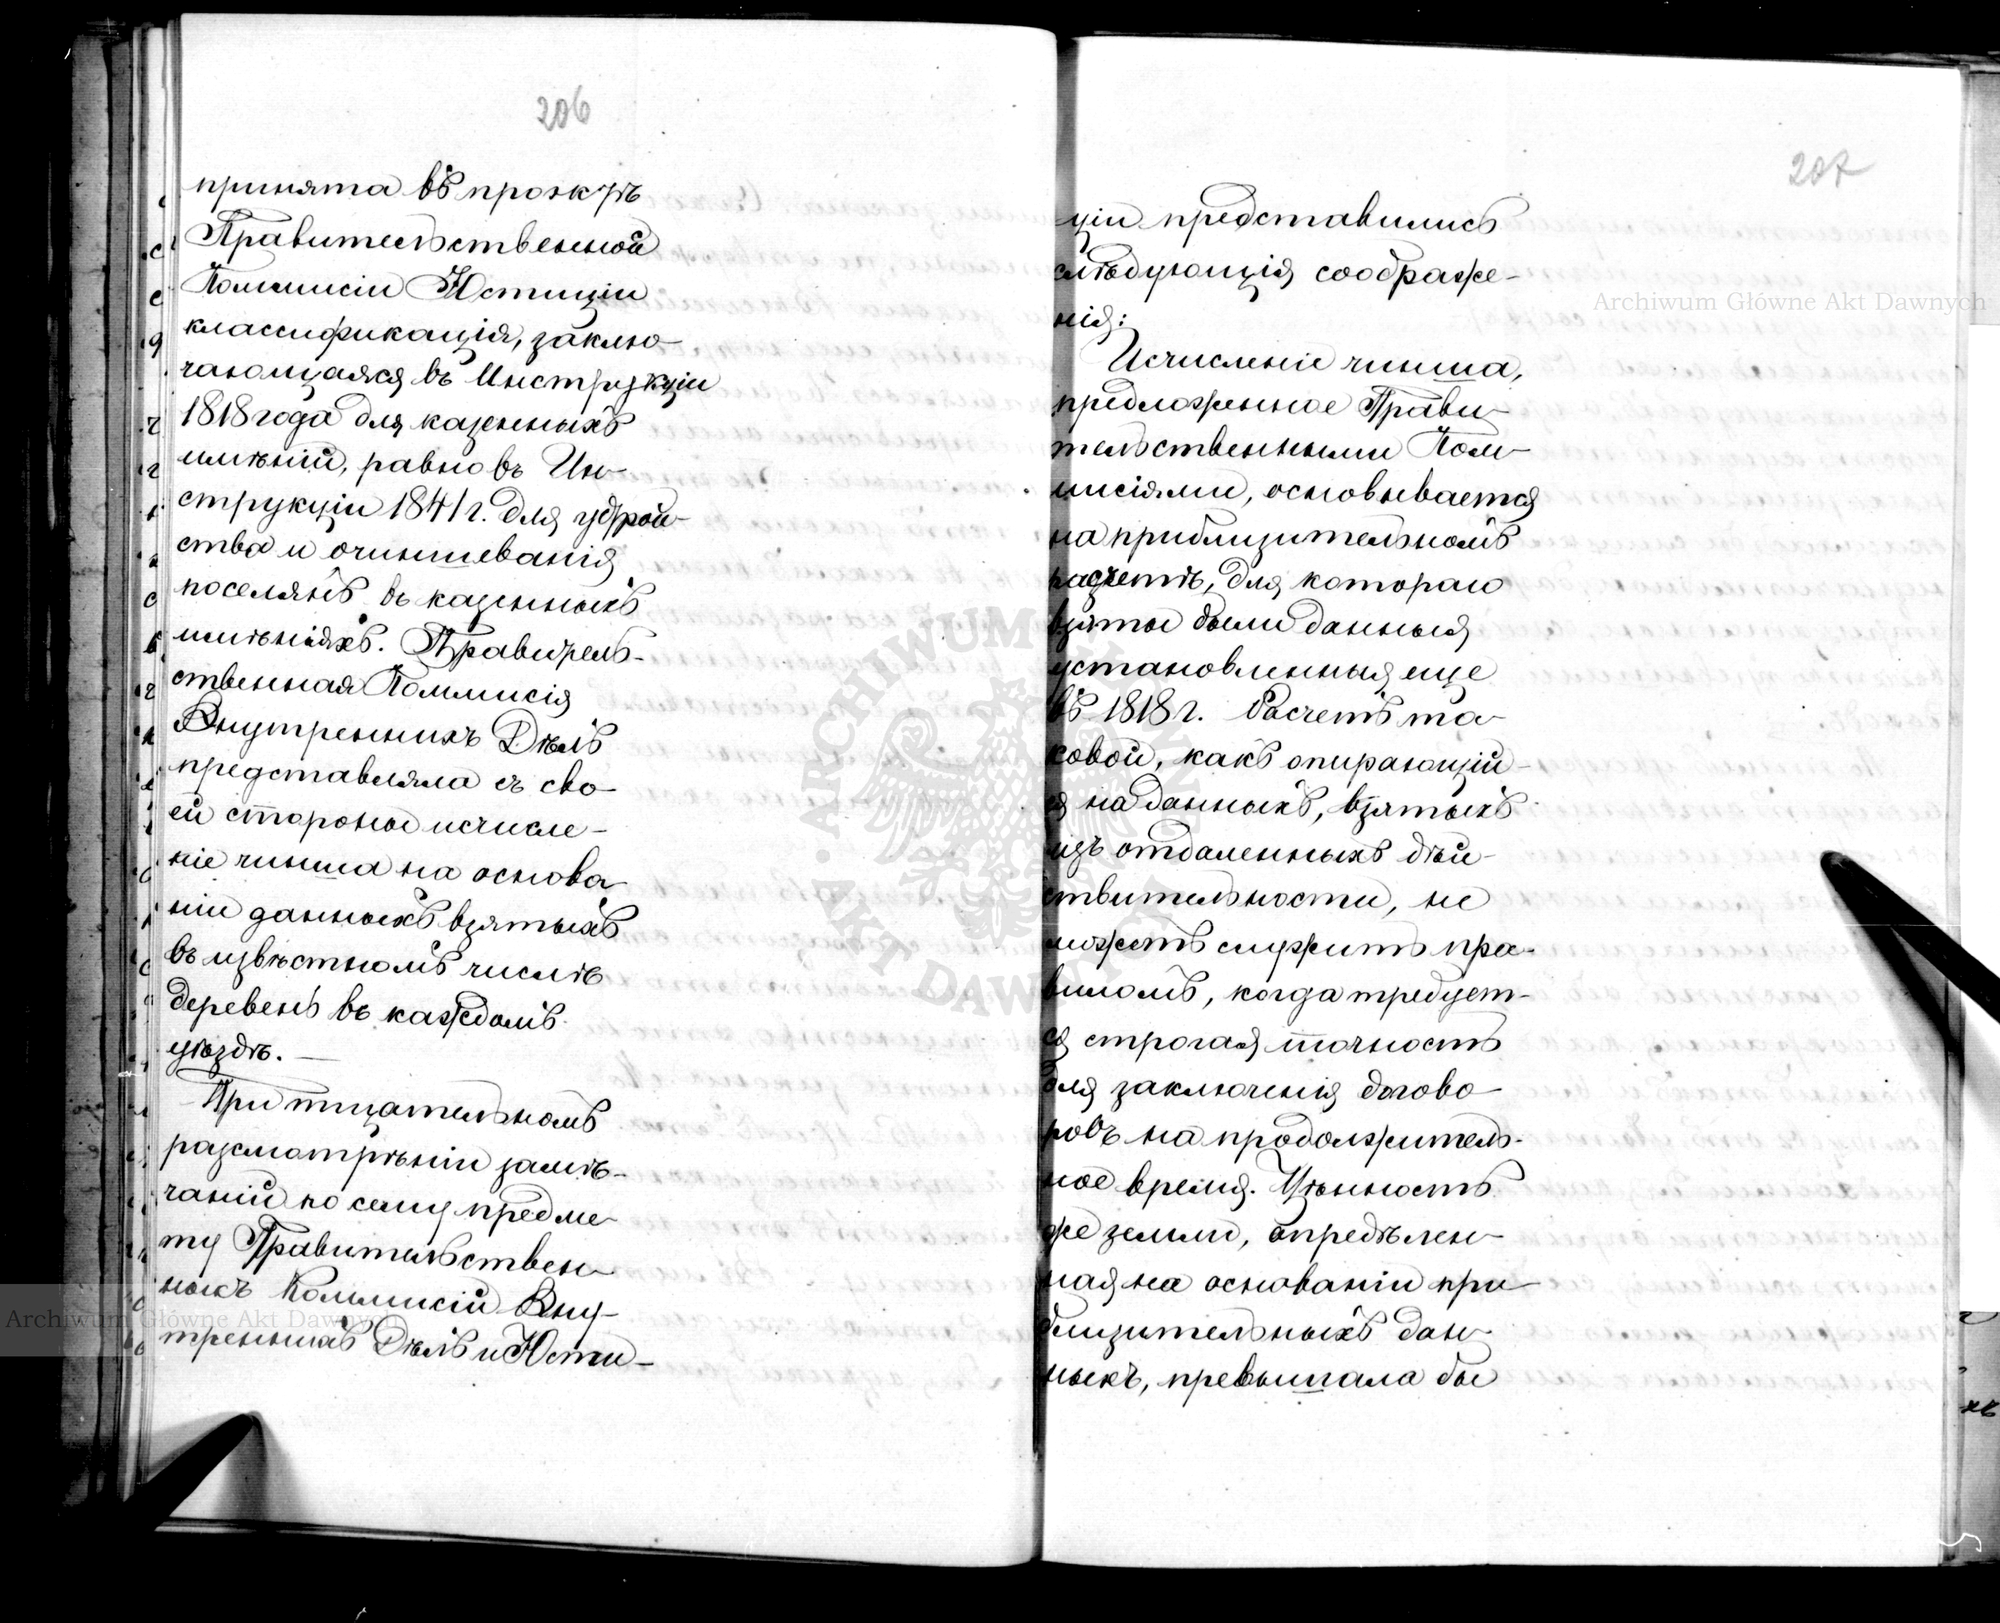 206
принята въ проэктѣ
Правительственной
Коммисіи Юстиціи
классификація, заклю-
чающаяся въ Инструкціи
1818 года для казенныхъ
имѣній, равно въ Ин-
струкціи 1841 г. для устрой-
ства и очиншеванія
поселянъ въ казенныхъ
имѣніяхъ. Правитель-
ственная Коммисія
Внутреннихъ Дѣлъ
представляла съ сво-
ей стороны исчисле-
ніе чинша на основа-
ніи данныхъ взятыхъ
въ извѣстномъ числѣ
деревень въ каждомъ
уѣздѣ. —
При тщательномъ
разсмотрѣніи замѣ-
чаній по сему предме-
ту Правительствен-
ныхъ Коммисій Вну-
треннихъ Дѣлъ и Юсти-
207
ціи представились
слѣдующія соображе-
нія:
Исчисленіе чинша,
предложенное Прави-
тельственными Ком-
мисіями, основывается
на приблизительномъ
расчетѣ, для котораго
взяты были данныя
установленныя еще
въ 1818 г. Расчетъ та-
ковой, какъ опирающій-
ся на данныхъ, взятыхъ
изъ отдаленныхъ дѣй-
ствительности, не
можетъ служить пра-
виломъ, когда требует-
ся строгая точность
для заключенія догово-
ровъ на продолжитель-
ное время. Цѣнность
же земли, опредѣлен-
ная на основаніи при-
близительныхъ дан-
ныхъ, превышала бы
Archiwum Główne Akt Dawnych
Archiwum Główne Akt Dawnych